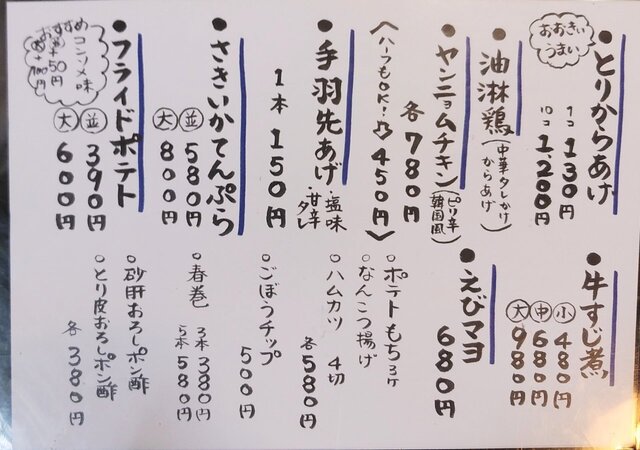 おおきい
うまい
●とりからあげ
1コ 130円
10コ 1,200円
●油淋鶏(中華タレかけからあげ)
●ヤンニョムチキン(ピリ辛韓国風)
各780円
〈ハーフもOK! 450円〉
●手羽先あげ・塩味・甘辛タレ
1本 150円
●さきいかてんぷら
並 580円
大 800円
●フライドポテト
並 390円
大 600円
おすすめ
コンソメ味
+50円
+100円
●牛すじ煮
小 480円
中 680円
大 980円
●えびマヨ
680円
○ポテトもち3ケ
○なんこつ揚げ
○ハムカツ 4切
各580円
○ごぼうチップ
500円
○春巻
3本 380円
5本 580円
○砂肝おろしポン酢
○とり皮おろしポン酢
各380円